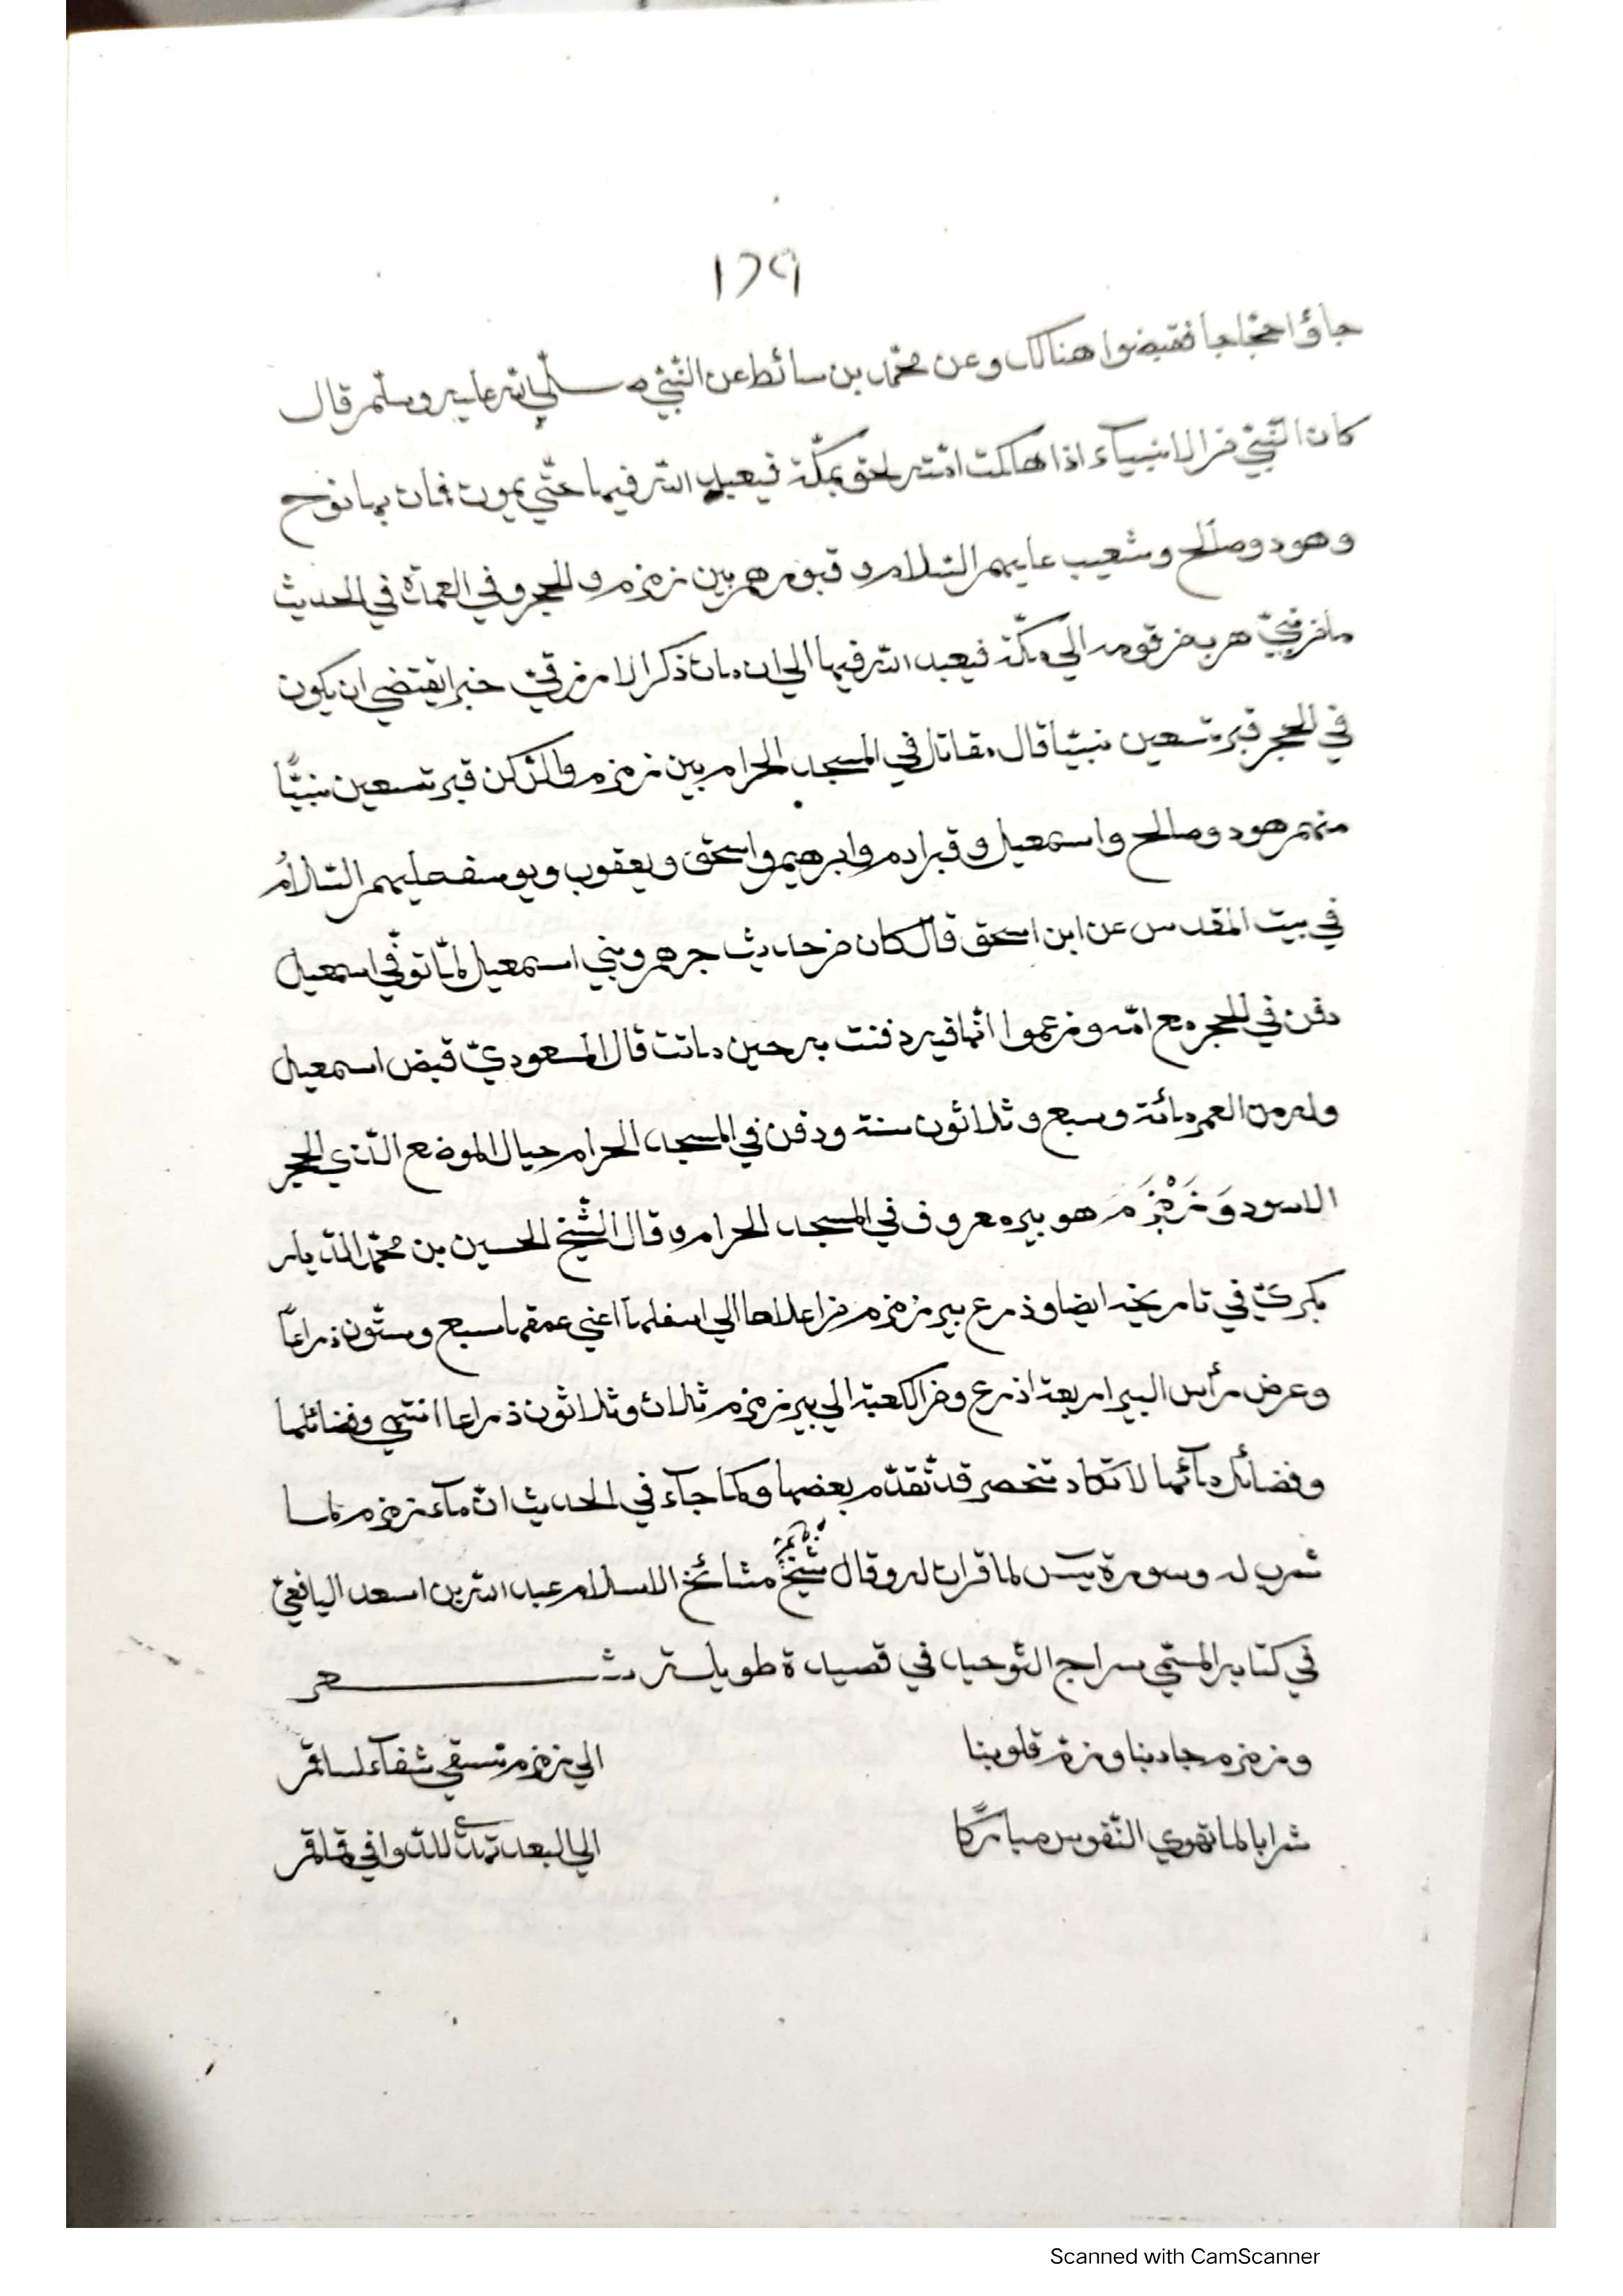 ١٢٩
جاؤا حجّاجا فقبضوا هنالك وعن محمّد بن سائط عن النّبيّ صلّي الله عليه وسلّم قال
كان النّبيّ من الانبيآء اذا هلكت امّته لحق بمكّة فيعبد الله فيها حتّي يموت فمات بها نوح
وهود وصالح وشعيب عليهم السّلام و قبورهم بين زمزم و الحجر وفي العمدة في الحديث
ما من نبيّ هرب من قومه الي مكّة فيعبد الله فيها الي ان مات ذكر الازرقيّ خبرا يقتضي ان يكون
في الحجر قبر تسعين نبيّا قال مقاتل في المسجد الحرام بين زمزم والرّكن قبر تسعين نبيًّا
منهم هود وصالح واسمعيل وقبر ادم وابرهيم واسحق ويعقوب ويوسف عليهم السّلامُ
في بيت المقدس عن ابن اسحق قال كان من حديث جرهم وبني اسمعيل لمّا توفّي اسمعيل
دفن في الحجر مع امّه وزعموا انّها فيه دفنت به حين ماتت قال المسعوديّ قبض اسمعيل
وله من العمر مائة وسبع وثلاثون سنة ودفن في المسجد الحرام حيال الموضع الّذي الحجر
الاسود وَزَمْزَمَ هو بير معروف في المسجد الحرام وقال الشّيخ الحسين بن محمّد الدّيار
بكريّ في تاريخه ايضا وذرع بير زمزم من اعلاها الي اسفلها اعني عمقها سبع وستّون ذراعاً
وعرض رأس البير اربعة اذرع ومن الكعبة الي بير زمزم ثلاث وثلاثون ذراعا انتهي وفضائلها
وفضائل مآئها لا تكاد تنحصر قد تقدّم بعضها وكما جآء في الحديث انّ مآء زمزم لما
شرب له وسورة يٓس لما قرات له وقال شيخ مشائخ الاسلام عبد الله بن اسعد اليافعيّ
في كتابه المسمّي سراج التّوحيد في قصيدة طويلة شعر
وزمزم جاد بنا وزمّ قلوبنا الي زمزم تسقي شفآء لساقم
شرابا لما تهوي النّفوس مباركًا الي البعد للدّوافي